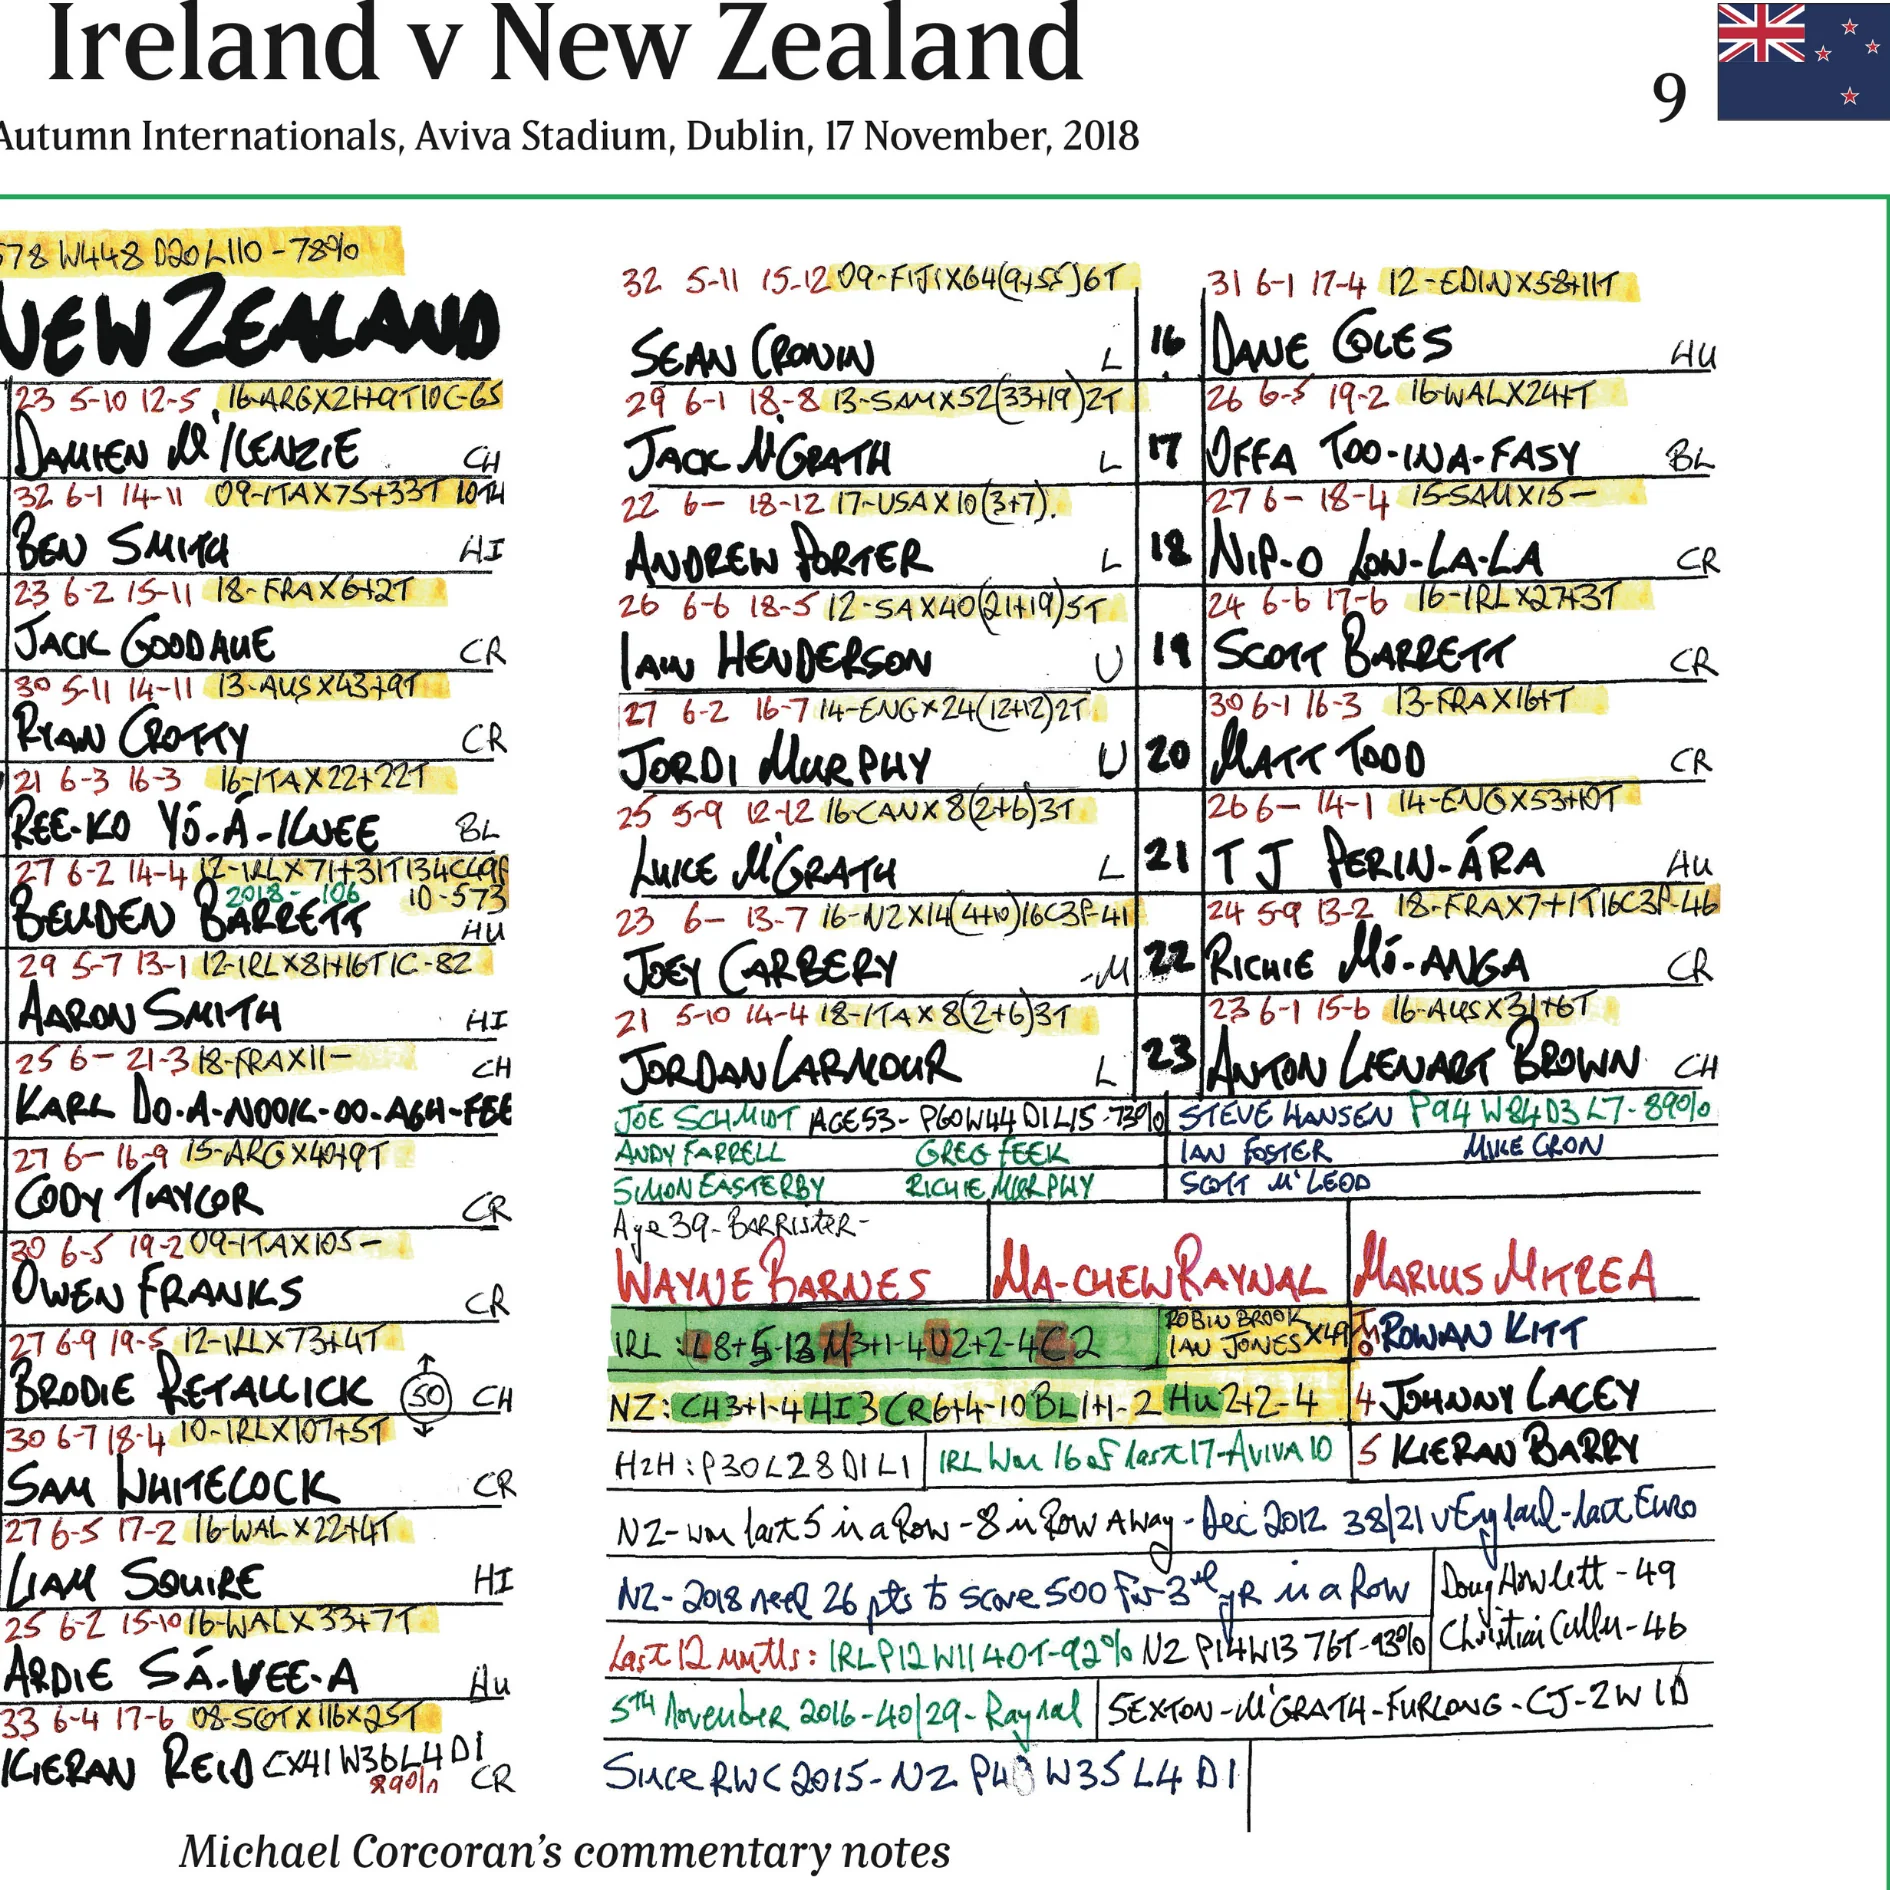 Ireland v New Zealand
9
Autumn Internationals, Aviva Stadium, Dublin, 17 November, 2018
578 W448 D20 L110 - 78%
NEW ZEALAND
23 5-10 12-5 16-ARGX21+9T10C-65
DAMIEN M'KENZIE CH
32 6-1 14-11 09-ITAX75+33T 10TH
BEN SMITH HI
23 6-2 15-11 18-FRAX6+2T
JACK GOODHUE CR
30 5-11 14-11 13-AUSX43+9T
RYAN CROTTY CR
21 6-3 16-3 16-ITAX22+22T
REE-KO YÓ-Á-KWEE BL
27 6-2 14-4 12-IRLX71+31T134C49P
2018 - 106 10-573
BEUDEN BARRETT HU
29 5-7 13-1 12-IRLX81+16T1C-82
AARON SMITH HI
25 6- 21-3 18-FRAX11-
CH
KARL DO-A-NOOK-OO-AGH-FEE
27 6- 16-9 15-ARGX40+9T
CODY TAYLOR CR
30 6-5 19-2 09-ITAX105-
OWEN FRANKS CR
27 6-9 19-5 12-IRLX73+4T
BRODIE RETALLICK 50 CH
30 6-7 18-4 10-IRLX107+5T
SAM WHITELOCK CR
27 6-5 17-2 16-WALX22+4T
LIAM SQUIRE HI
25 6-2 15-10 16-WALX33+7T
ARDIE SÁ-VEE-A HU
33 6-4 17-6 08-SCOTX116X25T
KIERAN REID CX41 W36 L4 D1
89% CR
32 5-11 15-12 09-FIJIX64(9+55)6T 31 6-1 17-4 12-EDINX58+11T
SEAN CRONIN L 16 DANE COLES HU
29 6-1 18-8 13-SAMX52(33+19)2T 26 6-5 19-2 16-WALX24+T
JACK M'GRATH L 17 OFFA TOO-INA-FASY BL
22 6- 18-12 17-USAX10(3+7). 27 6- 18-4 15-SAMX15-
ANDREW PORTER L 18 NIP-O LOW-LA-LA CR
26 6-6 18-5 12-SAX40(21+19)5T 24 6-6 17-6 16-IRLX27+3T
IAIN HENDERSON U 19 SCOTT BARRETT CR
27 6-2 16-7 14-ENGX24(12+12)2T 30 6-1 16-3 13-FRAX16+T
JORDI MURPHY U 20 MATT TODD CR
25 5-9 12-12 16-CANX8(2+6)3T 26 6- 14-1 14-ENGX53+10T
LUKE M'GRATH L 21 TJ PERIN-ÁRA HU
23 6- 13-7 16-NZX14(4+10)16C3P-41 24 5-9 13-2 18-FRAX7+1T16C3P-46
JOEY CARBERY -M 22 RICHIE MÓ-ANGA CR
21 5-10 14-4 18-ITAX8(2+6)3T 23 6-1 15-6 16-AUSX31+6T
JORDAN LARMOUR L 23 ANTON LIENART BROWN CH
JOE SCHMIDT AGE53- P60W44D1L15-73% STEVE HANSEN P94 W84 D3 L7-89%
ANDY FARRELL GREG FEEK IAN FOSTER MIKE CRON
SIMON EASTERBY RICHIE MURPHY SCOTT M'LEOD
Age 39-BARRISTER-
WAYNE BARNES MA-CHEW RAYNAL MARIUS MITREA
IRL: L8+5-13 M3+1-4 U2+2-4 C2 ROBIN BROOK IAN JONES X49 TMO ROWAN KITT
NZ: CH3+1-4 HI3 CR6+4-10 BL1+1-2 HU2+2-4 4 JOHNNY LACEY
H2H: P30 L28 D1 L1 IRL Won 16 of last 17-AVIVA 10 5 KIERAN BARRY
NZ-won last 5 in a Row-8 in Row AWay-Dec 2012 38/21 v England-last Euro
NZ-2018 need 26 pts to score 500 for 3rd yR in a Row Doug Howlett-49
Last 12 mnths: IRL P12 W11 40T-92% NZ P14 W13 76T-93% Christian Cullen-46
5TH November 2016-40/29-Raynal SEXTON-M'GRATH-FURLONG-CJ-2W 1D
Since RWC 2015-NZ P40 W35 L4 D1
Michael Corcoran's commentary notes